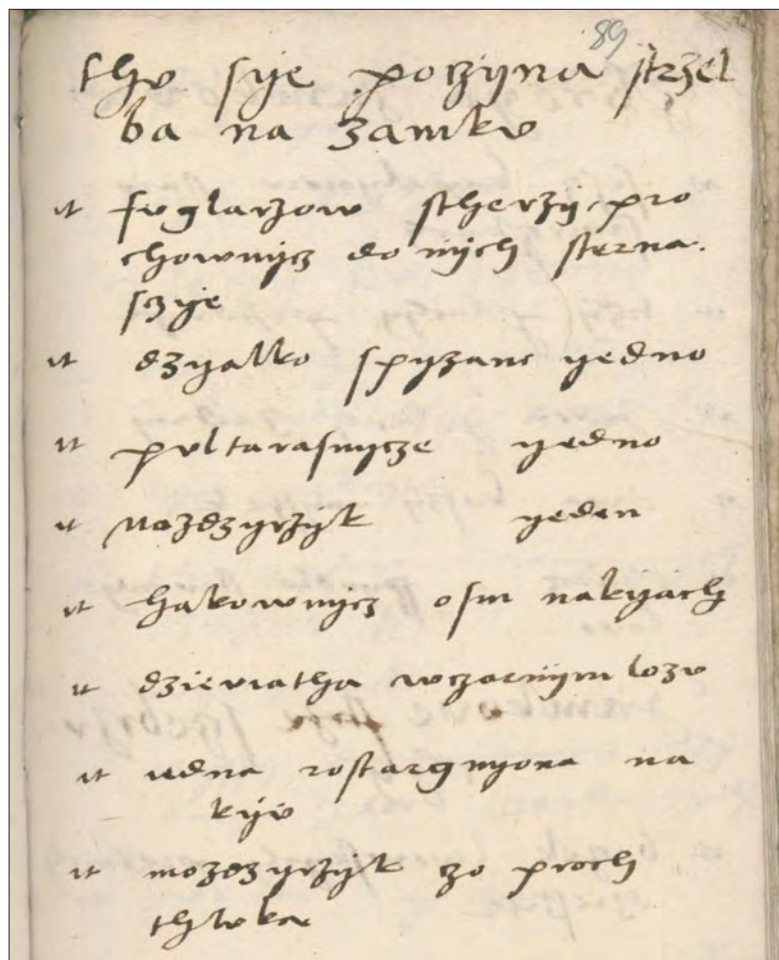 89
thv sye poczyna strzel
ba na zamkv
it fvglarzow stherzy, pro
chownycz do nych sterna
sczye
it dzyalko spyzane yedno
it pvltarasnycze yedno
it mozdzyrzyk yeden
it hakownycz osm na kyach
it dzieviatha w czarnym lozv
it iedna rostargnyona na
kyv
it mozdzyrzyk czo proch
thlvka